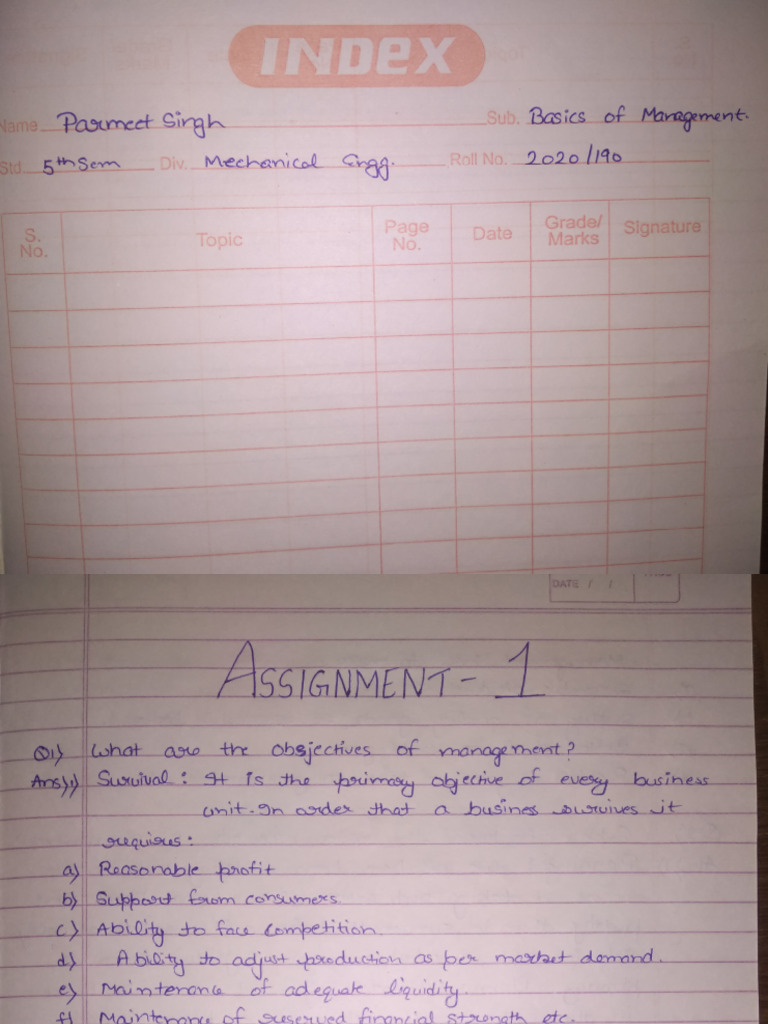 INDEX
Name Parmeet Singh Sub. Basics of Management.
Std 5th Sem Div. Mechanical Engg. Roll No. 2020/190
S. No. Topic Page No. Date Grade/Marks Signature
DATE / /
ASSIGNMENT-1
Q1) What are the obsjectives of management?
Ans)1) Survival: It is the primary objective of every business
unit. In order that a busines survives it
requires:
a) Reasonable profit
b) Support from consumers.
c) Ability to face competition.
d) Ability to adjust production as per market demand.
e) Maintenance of adequate liquidity.
f) Maintenance of reserved financial strength etc.